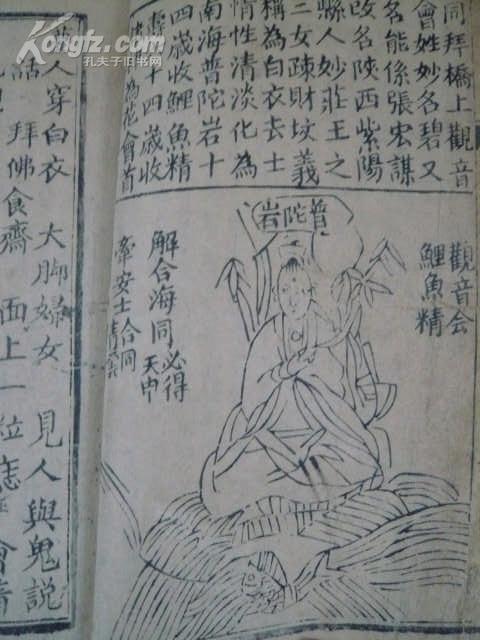 同拜橋上觀音
會姓妙名碧又
名能係張宏謀
改名陝西紫陽
縣人妙莊王之
二女疎財坟義
稱為白衣去士
情性清淡化為
南海普陀岩十
四歲收鯉魚精
十四歲收
為花會首
觀音会
鯉魚精
普陀岩
解合海同必得
天申
牽安士合同
人穿白衣 大脚婦女 見人與鬼説
話 拜佛食齋 面上一粒痣 會音
Kongfz.com
孔夫子旧书网